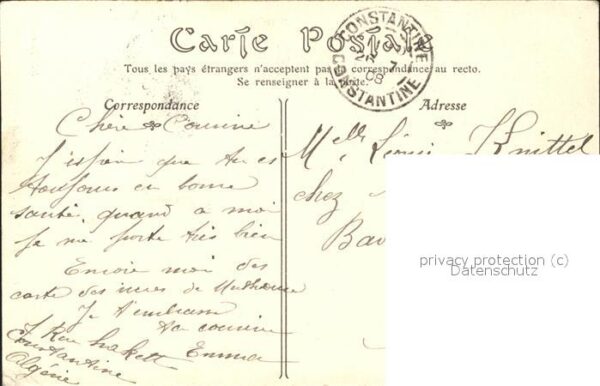 Carte Postale
Tous les pays étrangers n'acceptent pas la correspondance au recto.
Se renseigner à la poste.
CONSTANTINE
7
08
CONSTANTINE
Correspondance
Adresse
Chère Cousine
J'espère que tu es
toujours en bonne
santé, quand a moi
je me porte très bien
Envoie moi des
carte des
Je t'embrasse
ta cousine
Emma
Constantine
Algérie
Melle Knittel
chez
privacy protection (c)
Datenschutz